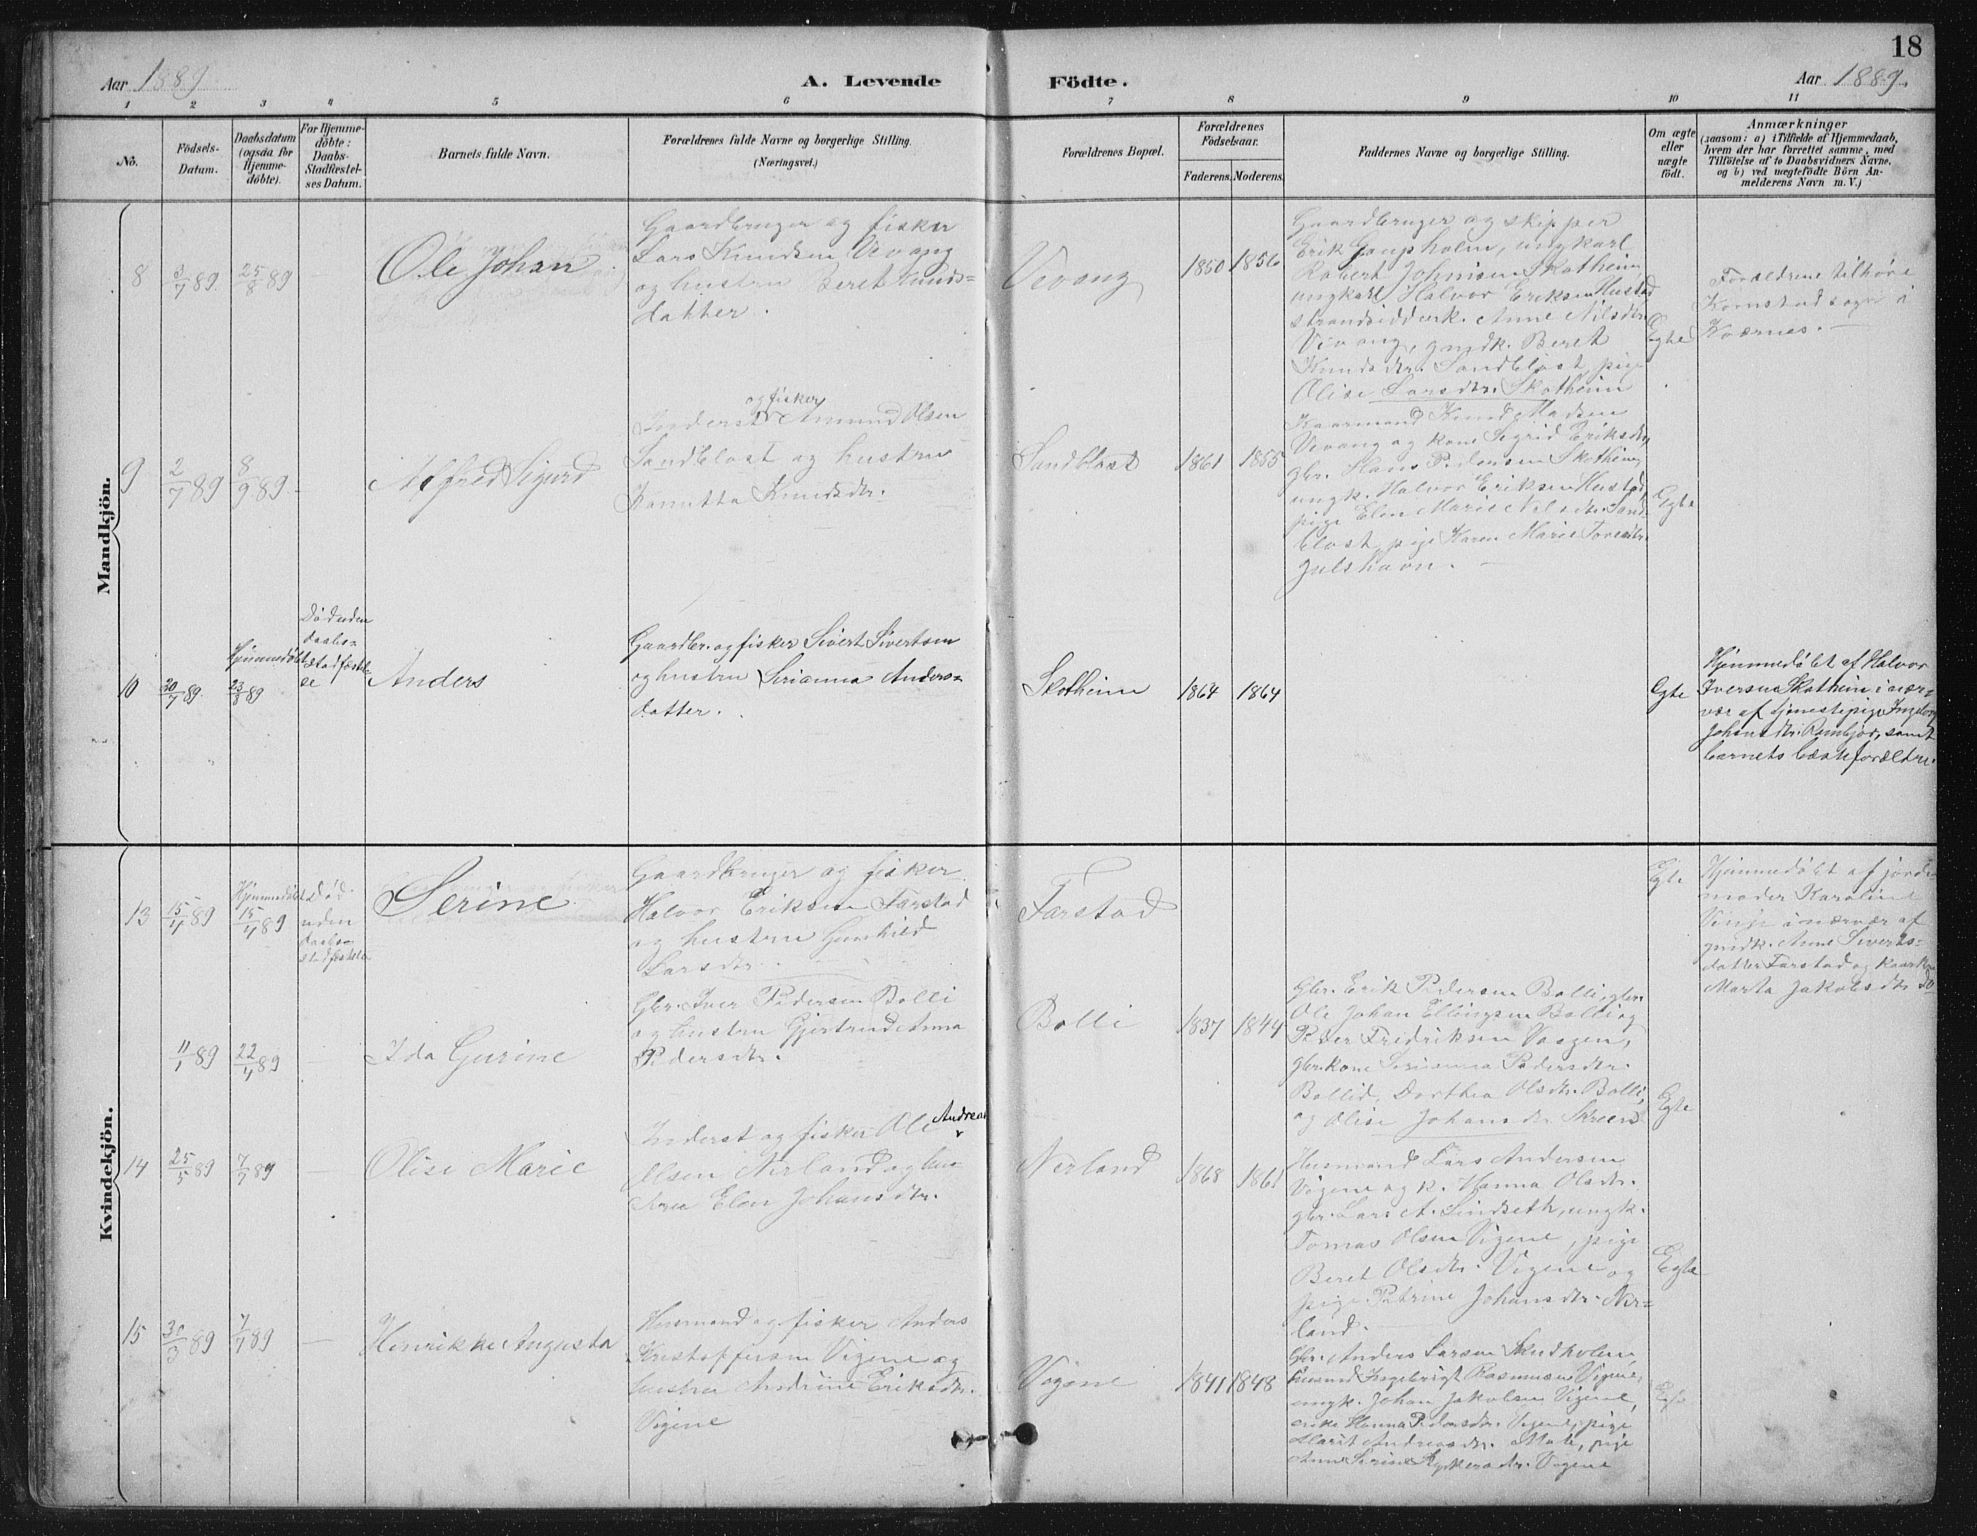 18
Aar 1889
A. Levende
Födte.
Aar 1889.
1
2
3
4
5
6
7
8
9
10
11
No.
Födsels-
Datum.
Daabsdatum
(ogsaa for
Hjemme-
döbte).
For Hjemme-
döbte:
Daabs-
Stadfæstel-
ses Datum.
Barnets fulde Navn.
Forældrenes fulde Navne og borgerlige Stilling.
(Næringsvei.)
Forældrenes Bopæl.
Forældrenes
Födselsaar.
Faderens.
Moderens.
Faddernes Navne og borgerlige Stilling.
Om ægte
eller
uægte
födt.
Anmærkninger
(saasom: a) i Tilfælde af Hjemmedaab,
hvem der har forrettet samme, med
Tilföielse af to Daabsvidners Navne,
og b) ved uægtefödte Börn An-
melderens Navn m. V.)
Mandkjön.
8
3/7 89
25/8 89
Ole Johan
Gaardbruger og fisker
Lars Knudsen Vevang
og hustru Beret Knuds-
datter.
Vevang
1850
1856
Gaardbruger og skipper
Erik Gaupholm, ungkarl
Robert Johnsen Skotheim
ungkarl Halvor Eriksen Hustad
Anne Nilsdtr.
Vevang, gmdk. Beret
Knudsdtr. Sandblost, pige
Olise Larsdtr. Skotheim
Egte
Forældrene tilhøre
Kornstad sogn i
Kværnes.
9
2/7 89
8/9 89
Alfred Sigurd
og fisker
Inderst Amund Olsen
Sandblost og hustru
Knudsdtr.
Sandblost
1861
1855
Kaarmand Knud Madsen
Vevang og kone Sigrid Eriksdtr.
gbr. Hans Pedersen Skotheim
ungk. Halvor Eriksen Hustad,
pige Elen Marie Nilsdtr. Sand-
blost, pige Karen Marie
Julshavn.
Egte
10
30/7 89.
Hjemmedøbt
23/8 89
Død uden
daabs-
stadfæstel-
se
Anders
Gaardbr. og fisker Sivert Sivertsen
og hustru Serianna Anders-
datter.
Skotheim
1864
1864
Egte
Hjemmedøbt af Halvor
Iversen Skotheim i nær-
vær af tjenestepige Ingeborg
Johansdtr. samt
barnets bedsteforældre.
Kvindekjön.
13
15/4 89
Hjemmedøbt
15/4 89
død
uden
daabs-
stadfæstelse
Serine
Gaardbruger og fisker
Halvor Eriksen Farstad
og hustru Gunhild
Larsdtr.
Farstad
Egte
Hjemmedøbt af jorde-
moder Karoline
Vinje i nærvær af
gmdk. Anne Siverts-
datter Farstad og kaark.
Marta Jakobsdtr. do
11/1 89
22/4 89
Ida Gurine
Gbr. Iver Pedersen Bolli
og hustru Gjertrud Anna
Pedersdtr.
Bolli
1837
1844
Gbr. Erik Pedersen Bolli, gbr.
Ole Johan Ellingsen Bolli og
Peder Fredriksen Vaagen,
gbr.kone Serianna Pedersdtr.
Bolli, Dorthea Olsdtr. Bolli,
og Olise Johansdtr.
Egte
14
25/5 89
7/7 89
Olise Marie
Inderst og fisker Ole Andreas
Olsen Nerland og hus-
tru Elen Johansdtr.
Nerland
1868
1861
Husmand Lars Andersen
Vigene og k. Hanna Olsdtr.
gbr. Lars A. Lindseth, ungk.
Tomas Olsen Vigene, pige
Beret Olsdtr. Vigene og
pige Petrine Johansdtr. Ner-
land.
Egte
15
30/3 89
7/7 89
Henrikke Augusta
Husmand og fisker Anders
Kristoffersen Vigene og
hustru Andrine Eriksdtr.
Vigene
Vigene
1841
1848
Gbr. Anders Larsen Skudholm,
husmd. Ingebrigt Rasmussen Vigene,
ungk. Johan Jakobsen Vigene,
enke Hanna Pedersdtr. Vigene, pige
Marit Andreasdtr. Male, pige
Anne Serine Vigene
Egte